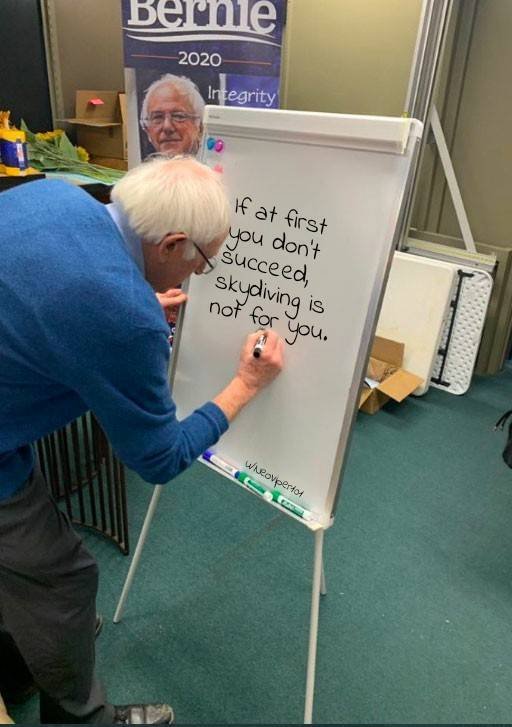 Bernie
2020
Integrity
If at first
you don't
succeed,
skydiving is
not for you.